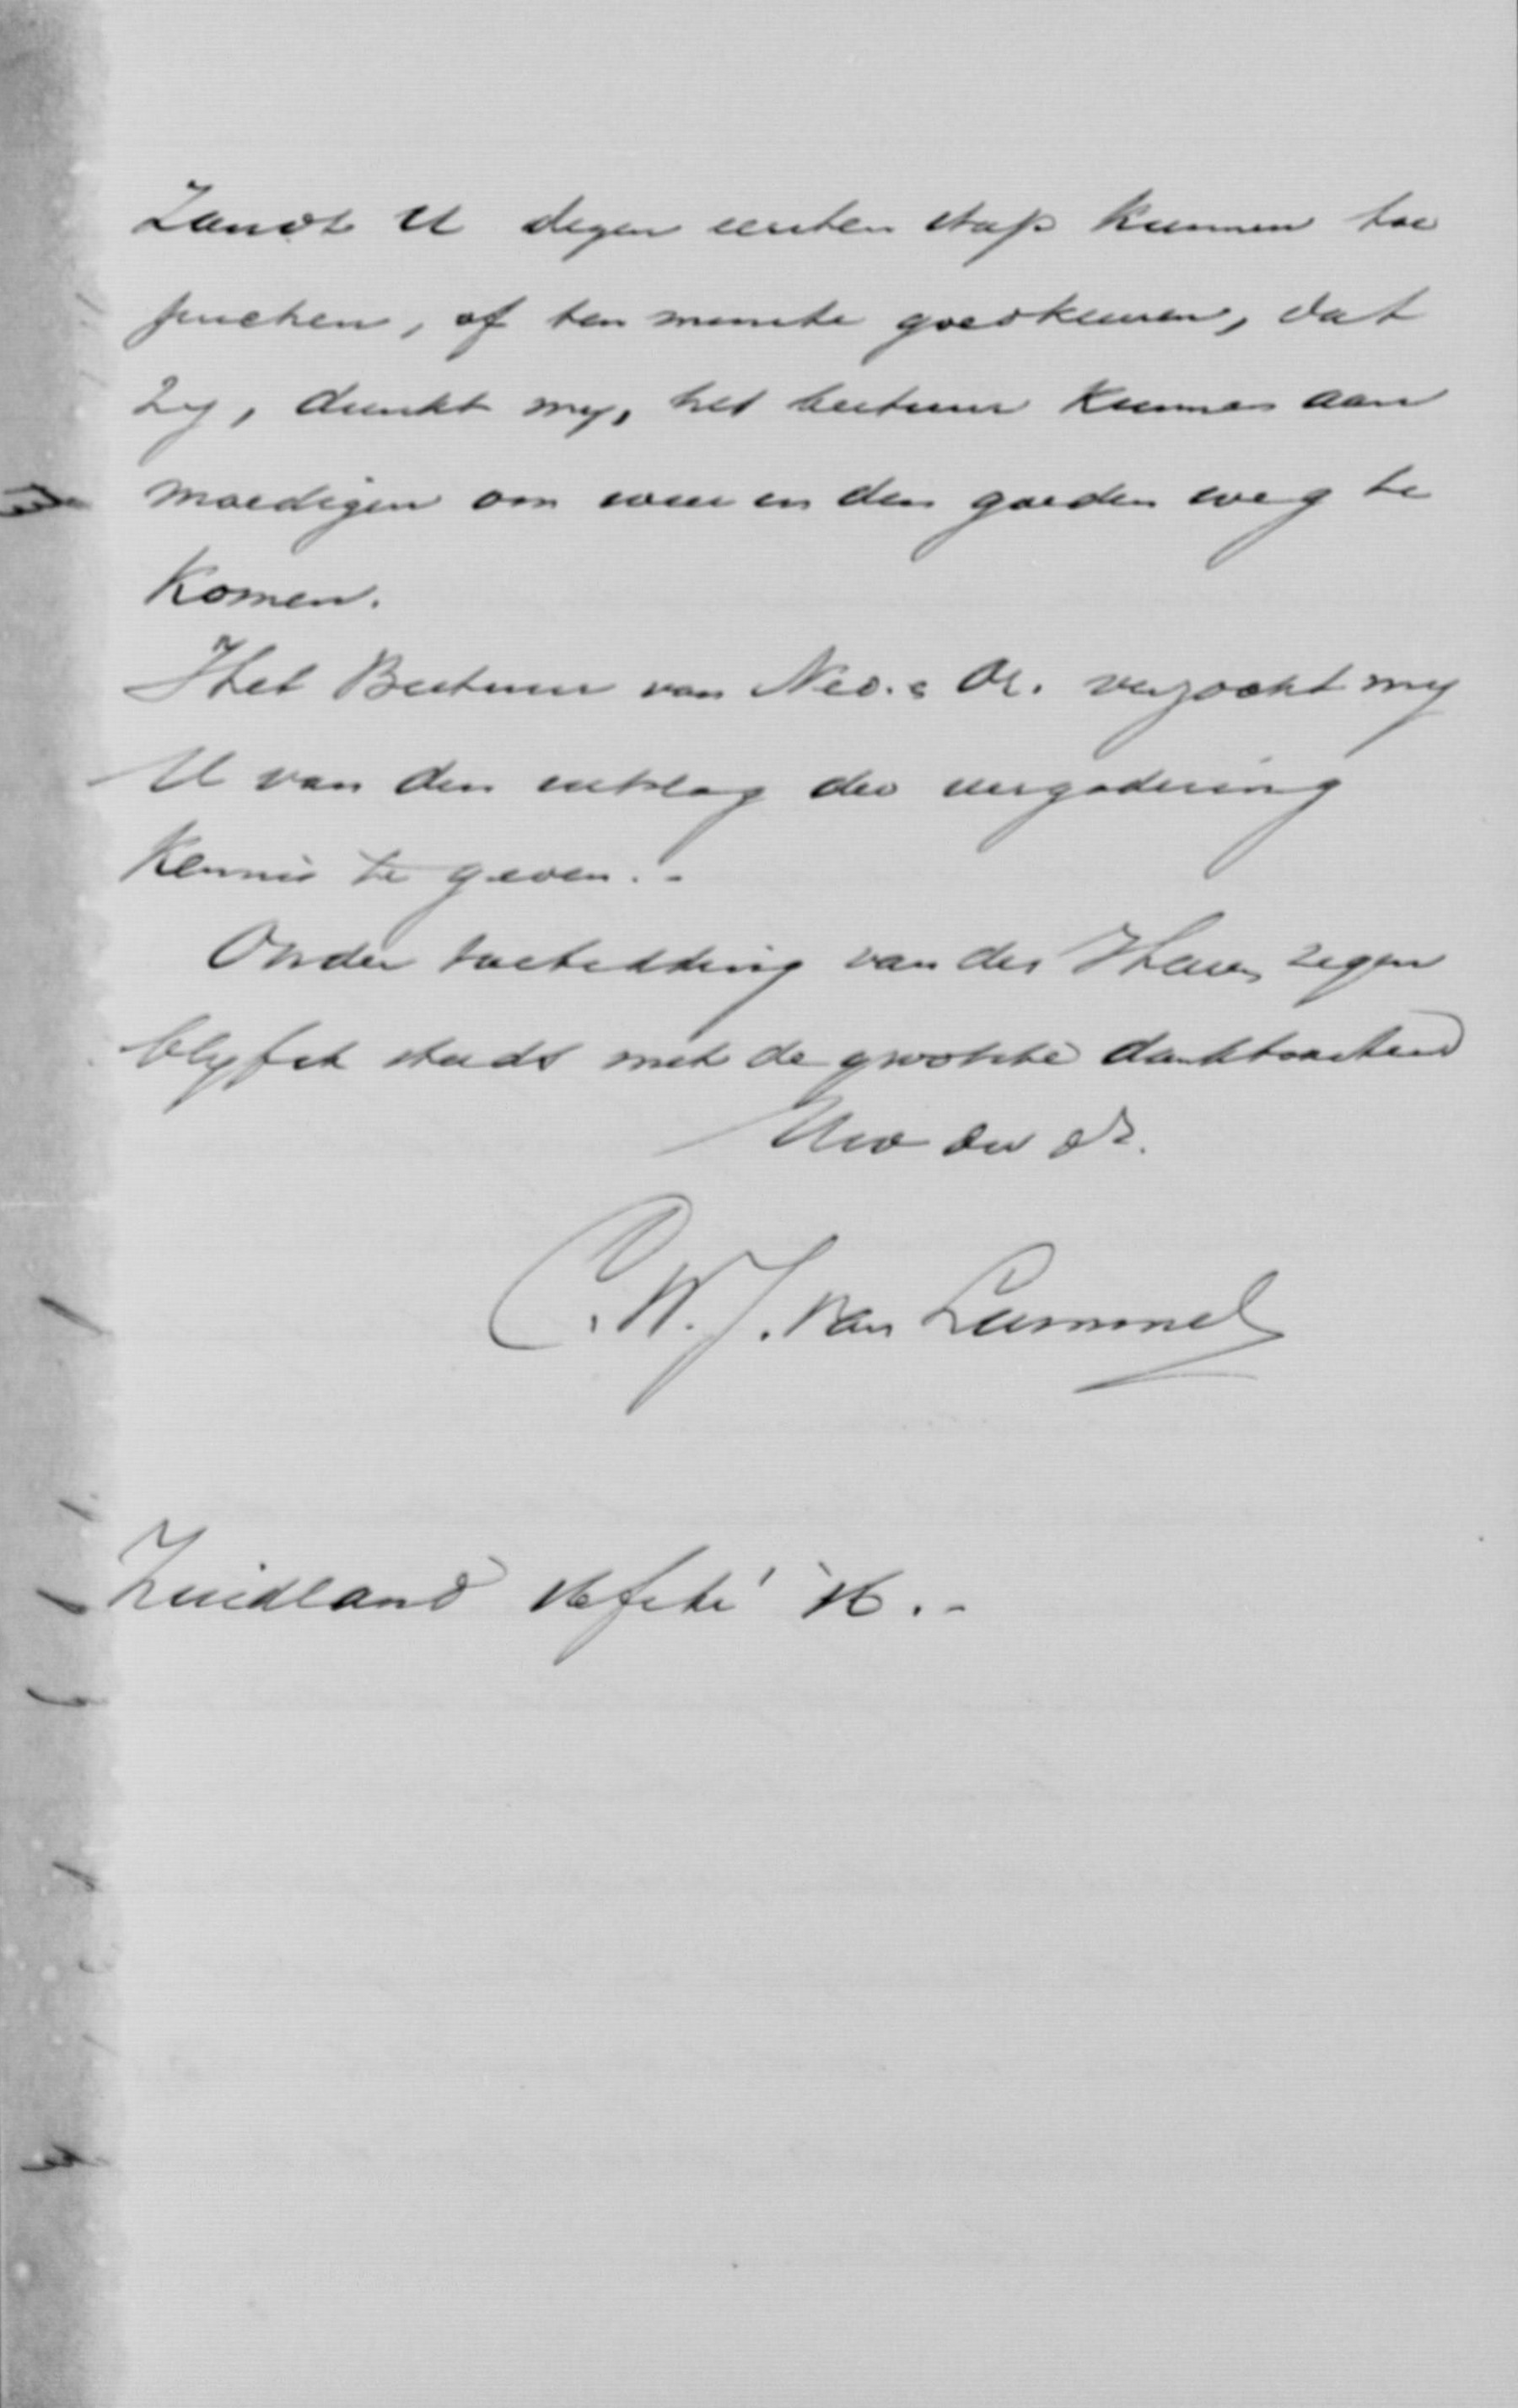 Zoudt U dezen eersten stap kunnen toe
juichen, of ten minste goedkeuren, dat
zy, dunkt my, het bestuur kunnen aan
moedigen om weer in den goeden weg te
komen.
Het Bestuur van Ned. & Or. verzocht my
U van den uitslag der vergadering
kennis te geven.-
Onder toebidding van des Heeren zegen
blyft steeds met de grootste dankbaarheid
Uw dw dr.
C.W.J. van Lummel
Zuidland 16 feb' '76.-